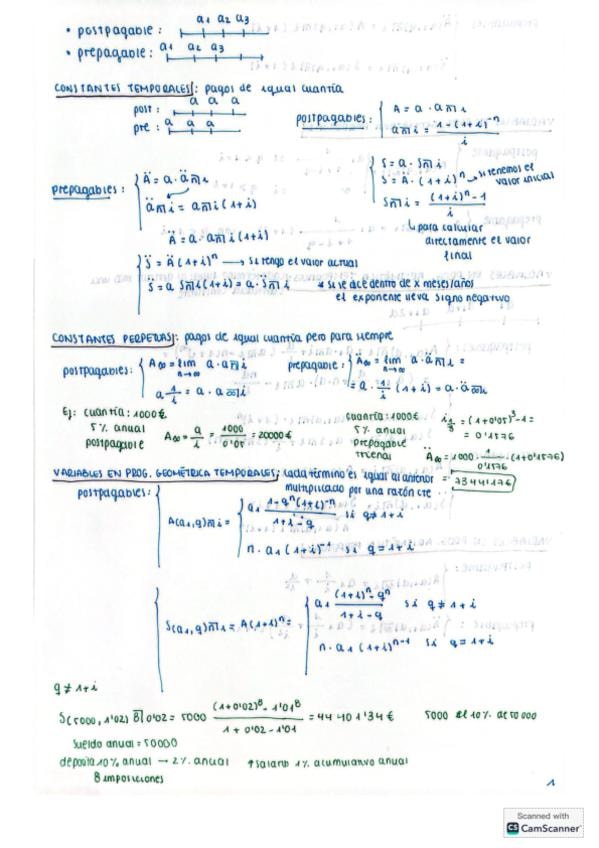 • postpagable : a1 a2 a3
• prepagable : a1 a2 a3
CONSTANTES TEMPORALES : pagos de igual cuantía
post : a a a
pre : a a a
postpagables : A = a · a n̅| i
a n̅| i = (1 - (1+i)^-n) / i
S = a · S n̅| i
S = A · (1+i)^n → si tenemos el valor inicial
S n̅| i = ((1+i)^n - 1) / i
↳ para calcular directamente el valor final
prepagables : Ä = a · ä n̅| i
ä n̅| i = a n̅| i (1+i)
Ä = a · a n̅| i (1+i)
S̈ = Ä (1+i)^n → si tengo el valor actual
S̈ = a S n̅| i (1+i) = a · S̈ n̅| i
* si se dice dentro de x meses/años
el exponente lleva signo negativo
CONSTANTES PERPETUAS : pagos de igual cuantía pero para siempre
postpagables : A∞ = lim n→∞ a · a n̅| i
a 1/i = a · a ∞̅| i
prepagable : Ä∞ = lim n→∞ a · ä n̅| i =
= a · 1/i (1+i) = a · ä ∞̅| i
Ej: cuantía : 1000€
5% anual
postpagable
A∞ = a/i = 1000/0'05 = 20000€
cuantía : 1000€
5% anual
prepagable
trienal
i 1/3 = (1+0'05)^3 - 1 =
= 0'1576
Ä∞ = 1000 · 1/0'1576 (1+0'1576)
= 7344'176
VARIABLES EN PROG. GEOMÉTRICA TEMPORALES : cada término es igual al anterior
multiplicado por una razón cte
postpagables :
A(a1,q) n̅| i = a1 (1 - q^n (1+i)^-n) / (1+i-q) si q ≠ 1+i
n · a1 (1+i)^-1 si q = 1+i
S(a1,q) n̅| i = A(1+i)^n = a1 ((1+i)^n - q^n) / (1+i-q) si q ≠ 1+i
n · a1 (1+i)^n-1 si q = 1+i
q ≠ 1+i
S(5000, 1'02) 8̅| 0'02 = 5000 ((1+0'02)^8 - 1'01^8) / (1+0'02-1'01) = 44401'34€
5000 el 10% de 50000
Sueldo anual = 50000
deposita 10% anual → 2% anual ↑ salario 1% acumulativo anual
8 imposiciones
1
Scanned with
CS CamScanner